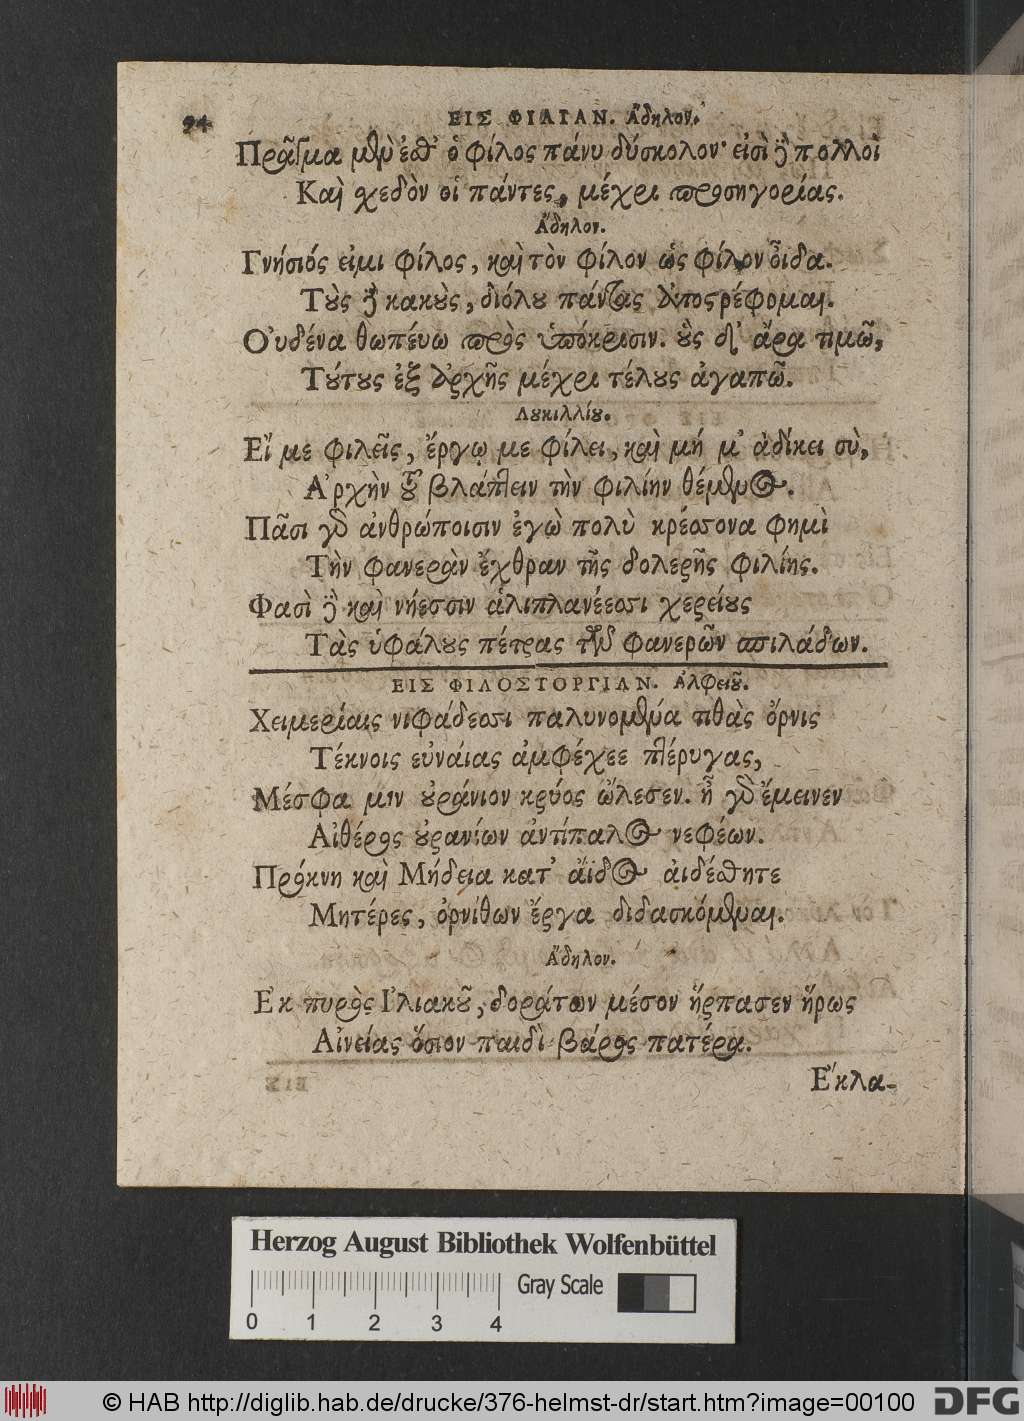 94
ΕΙΣ ΦΙΛΙΑΝ. Ἄδηλον.
Πρᾶγμα μὲν ἔσθ' ὁ φίλος πάνυ δύσκολον· εἰσὶ δὲ πολλοὶ
Καὶ σχεδὸν οἱ πάντες, μέχρι προσηγορίας.
Ἄδηλον.
Γνήσιός εἰμι φίλος, καὶ τὸν φίλον ὡς φίλον οἶδα.
Τοὺς δὲ κακοὺς, διόλου πάντας ἀποστρέφομαι.
Οὐδένα θωπεύω πρὸς ὑπόκρισιν. οὓς δ' ἄρα τιμῶ,
Τούτους ἐξ ἀρχῆς μέχρι τέλους ἀγαπῶ.
Λουκιλλίου.
Εἴ με φιλεῖς, ἔργῳ με φίλει, καὶ μή μ' ἀδίκει σὺ,
Ἀρχὴν τοῦ βλάπτειν τὴν φιλίην θέμενος.
Πᾶσι γὰρ ἀνθρώποισιν ἐγὼ πολὺ κρέσσονα φημὶ
Τὴν φανερὰν ἔχθραν τῆς δολερῆς φιλίης.
Φασὶ δὲ καὶ νήεσσιν ἁλιπλανέεσσι χερείους
Τὰς ὑφάλους πέτρας τῶν φανερῶν σπιλάδων.
ΕΙΣ ΦΙΛΟΣΤΟΡΓΙΑΝ. Ἀλφειοῦ.
Χειμερίαις νιφάδεσσι παλυνομένα τιθὰς ὄρνις
Τέκνοις εὐναίας ἀμφέχεε πτέρυγας,
Μέσφα μιν οὐράνιον κρύος ὤλεσεν. ἦ γὰρ ἔμεινεν
Αἰθέρος οὐρανίων ἀντίπαλος νεφέων.
Πρόκνη καὶ Μήδεια κατ' ἄϊδος αἰδέσθητε
Μητέρες, ὀρνίθων ἔργα διδασκόμεναι.
Ἄδηλον.
Ἐκ πυρὸς Ἰλιακοῦ, δοράτων μέσον ἥρπασεν ἥρως
Αἰνείας ὅσιον παιδὶ βάρος πατέρα.
Ἔκλα-
Herzog August Bibliothek Wolfenbüttel
0 1 2 3 4 Gray Scale
© HAB http://diglib.hab.de/drucke/376-helmst-dr/start.htm?image=00100
DFG